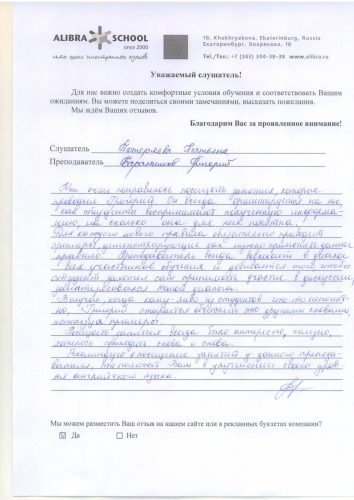 ALIBRA SCHOOL
since 2000
сеть школ иностранных языков
10, Khokhryakova, Ekaterinburg, Russia
Екатеринбург, Хохрякова, 10
Tel./Тел.: +7 (343) 344-38-38 www.alibra.ru
Уважаемый слушатель!
Для нас важно создать комфортные условия обучения и соответствовать Вашим
ожиданиям. Вы можете поделиться своими замечаниями, высказать пожелания.
Мы ждём Ваших отзывов.
Благодарим Вас за проявленное внимание!
Слушатель Потеряева Татьяна
Преподаватель Григорий
Мне очень понравилось посещать занятия, которые
проводил Григорий. Он всегда ориентируется на то,
как студенты воспринимают полученную информа-
цию, на сколько она для них понятна!
Для каждого нового правила обязательно приводит
примеры демонстрирующие как нужно применять данное
правило! Преподаватель всегда вовлекает в диалог
всех участников обучения и добивается того, чтобы
студент захотел сам принимать участие в дискуссии,
заинтересовался темой диалога.
В случае, когда кому-либо из студентов что-то непонят-
но, Григорий старается объяснить это другими словами,
используя примеры.
Посещать занятия всегда было интересно, полезно,
хотелось приходить снова и снова.
Рекомендую к посещению занятий у данного препода-
вателя, это поможет Вам в улучшении своего уров-
ня английского языка.
Мы можем разместить Ваш отзыв на нашем сайте или в рекламных буклетах компании?
☑ Да ☐ Нет